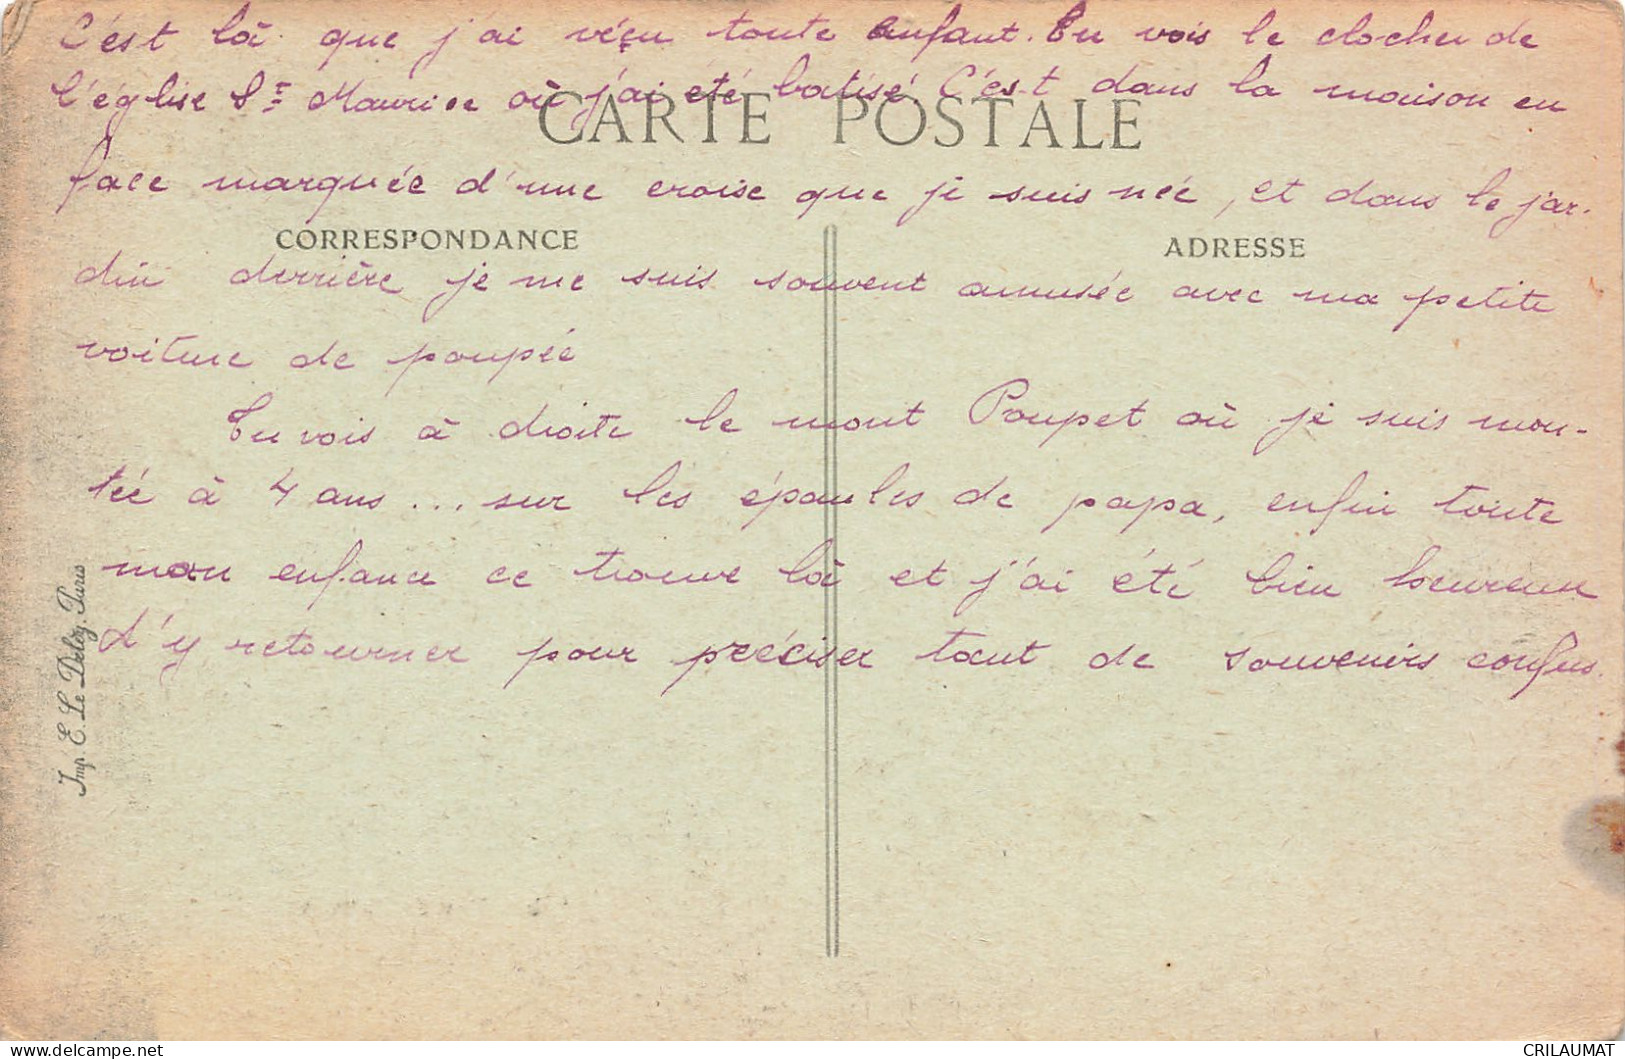 C'est là que j'ai véçu toute enfant. Tu vois le clocher de
l'église St Maurice où j'ai été batisé C'est dans la maison en
CARTE POSTALE
face marquée d'une croise que je suis née, et dans le jar-
CORRESPONDANCE
ADRESSE
din derrière je me suis souvent amusée avec ma petite
voiture de poupée
Tu vois à droite le mont Poupet où je suis mon-
tée à 4 ans ... sur les épaules de papa, enfin toute
mon enfance ce trouve là et j'ai été bien heureuse
d'y retourner pour préciser tant de souvenirs confus.
Imp. E. Le Deley. Paris
CRILAUMAT